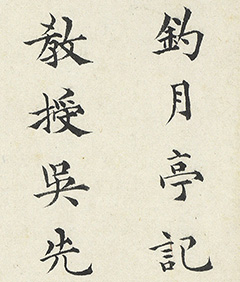 釣月亭記
教授吳先